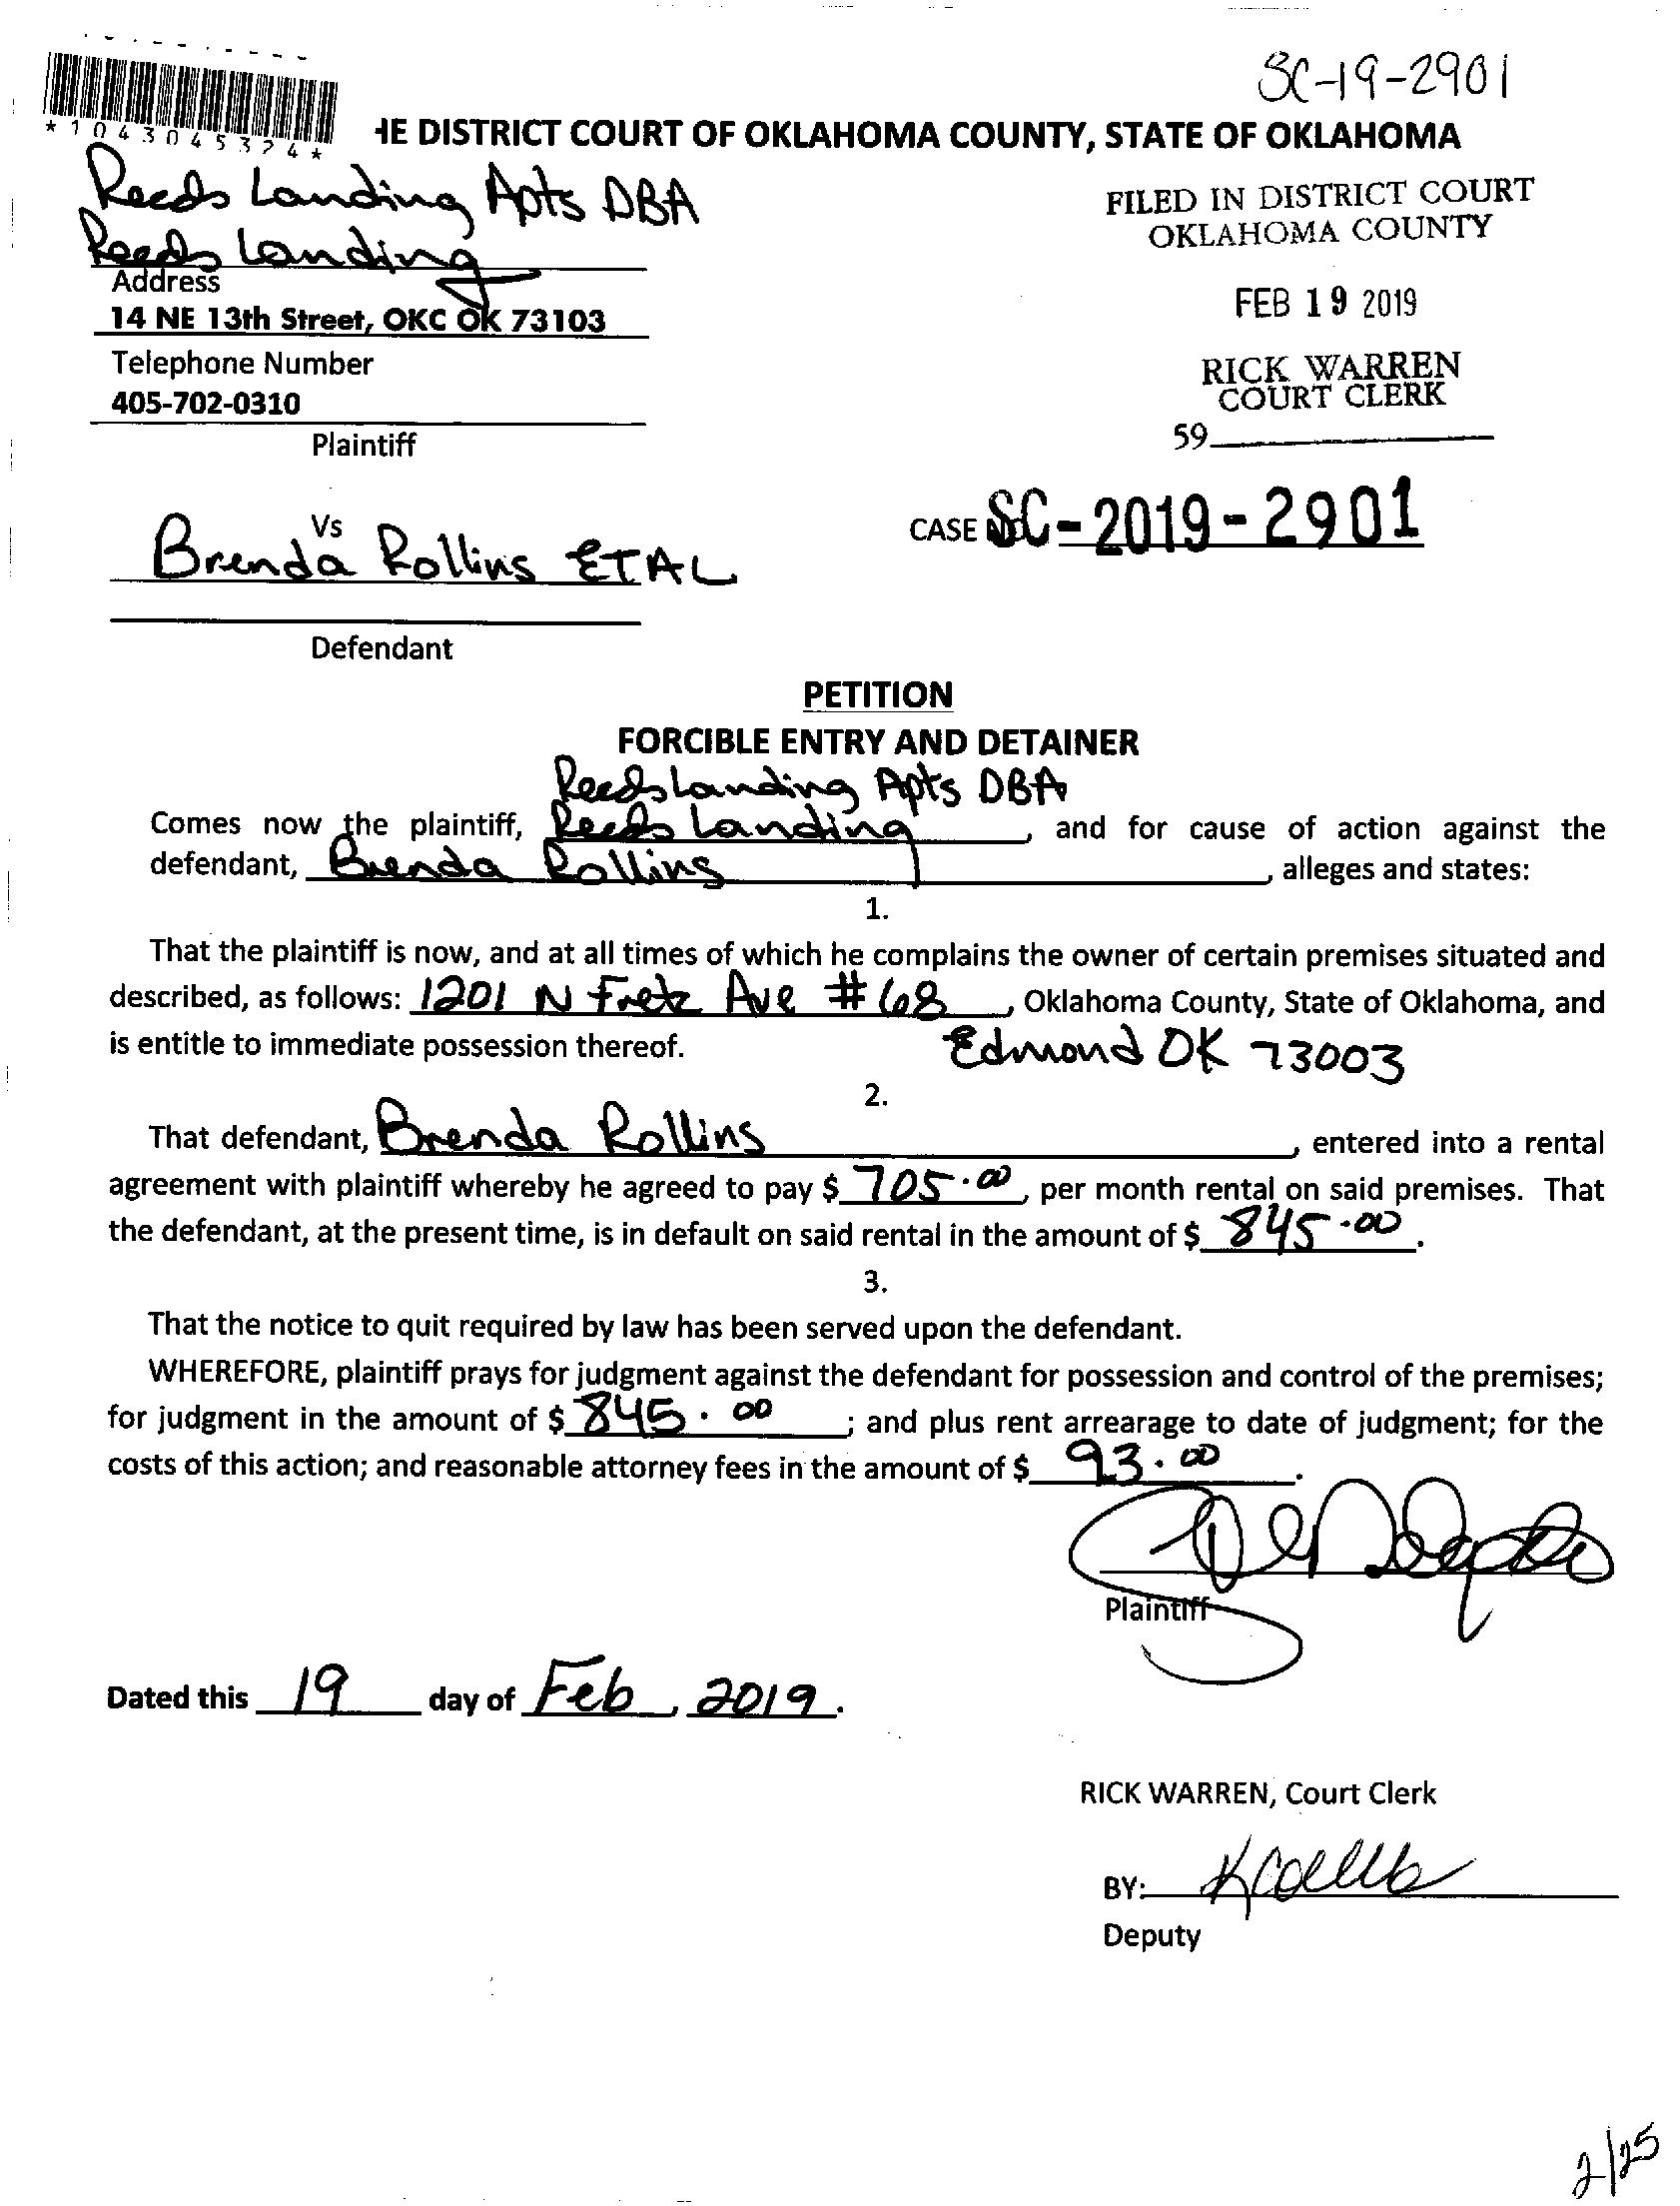 SC-19-2901
*1043045324*
HE DISTRICT COURT OF OKLAHOMA COUNTY, STATE OF OKLAHOMA
Reeds Landing Apts DBA
Reeds Landing
Address
14 NE 13th Street, OKC OK 73103
Telephone Number
405-702-0310
Plaintiff
FILED IN DISTRICT COURT
OKLAHOMA COUNTY
FEB 19 2019
RICK WARREN
COURT CLERK
59
Vs
Brenda Rollins ETAL
Defendant
CASE NO. SC-2019-2901
PETITION
FORCIBLE ENTRY AND DETAINER
Reeds Landing Apts DBA
Comes now the plaintiff, Reeds Landing, and for cause of action against the
defendant, Brenda Rollins, alleges and states:
1.
That the plaintiff is now, and at all times of which he complains the owner of certain premises situated and
described, as follows: 1201 N Fretz Ave #68, Oklahoma County, State of Oklahoma, and
is entitle to immediate possession thereof. Edmond OK 73003
2.
That defendant, Brenda Rollins, entered into a rental
agreement with plaintiff whereby he agreed to pay $ 705.00, per month rental on said premises. That
the defendant, at the present time, is in default on said rental in the amount of $ 845.00.
3.
That the notice to quit required by law has been served upon the defendant.
WHEREFORE, plaintiff prays for judgment against the defendant for possession and control of the premises;
for judgment in the amount of $ 845.00; and plus rent arrearage to date of judgment; for the
costs of this action; and reasonable attorney fees in the amount of $ 93.00.
Plaintiff
Dated this 19 day of Feb, 2019.
RICK WARREN, Court Clerk
BY:
Deputy
2/25